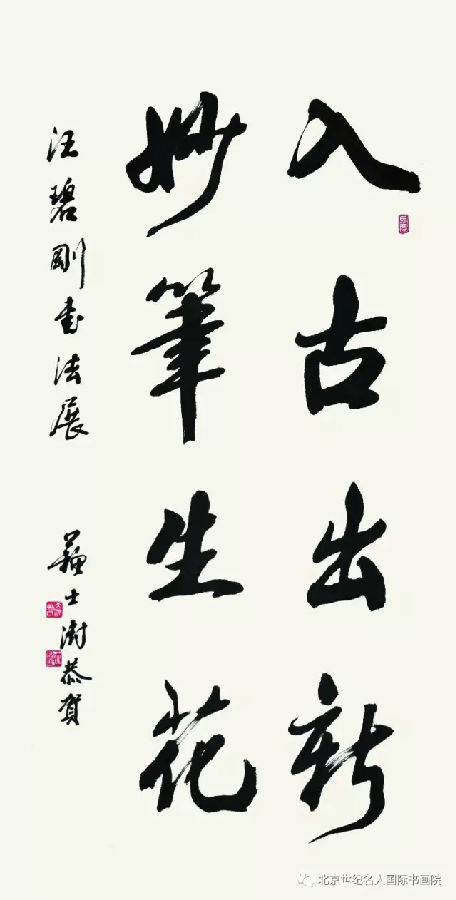 入古出新
妙筆生花
汪碧剛书法展
蘇士澍恭贺
北京世纪名人国际书画院